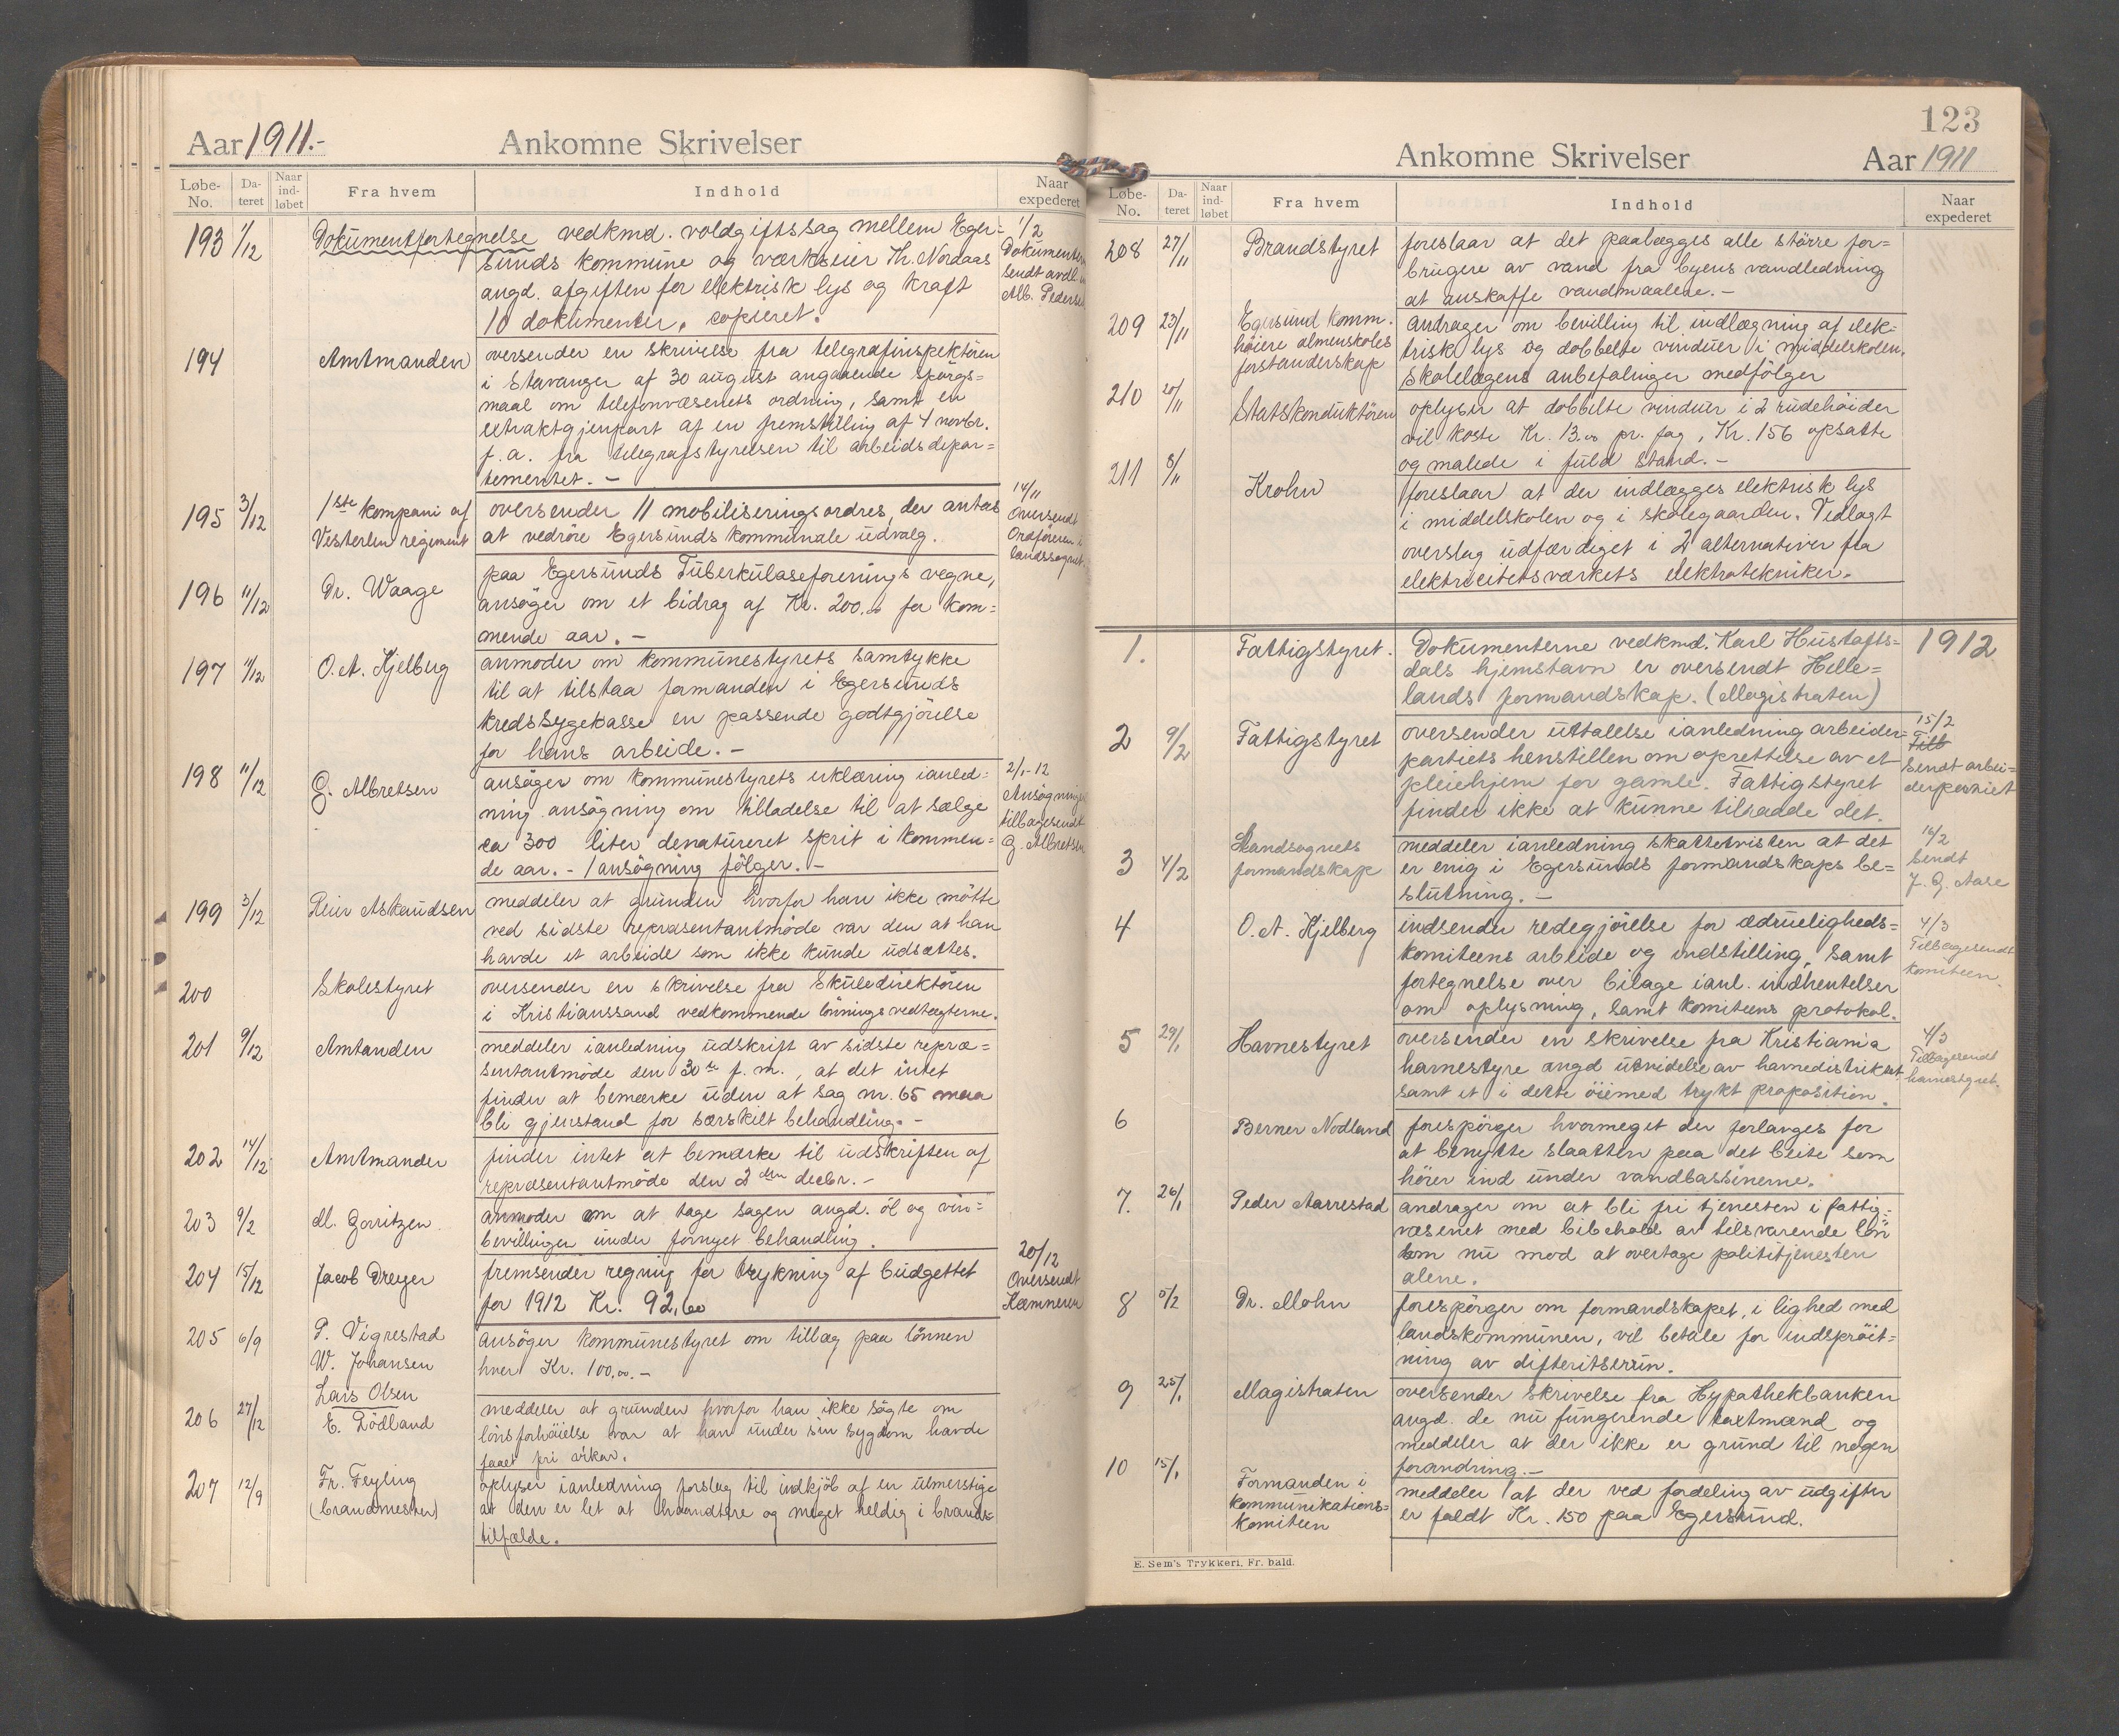 Aar 1911.-
Ankomne Skrivelser
Løbe-No.
Da-teret
Naar ind-løbet
Fra hvem
Indhold
Naar expederet
193 1/12 Dokumentfortegnelse vedkmd. voldgiftssag mellem Eger=
sunds kommune og værkseier Kr. Nordaas
angd. afgiften for elektrisk lys og kraft
10 dokumenter, copieret.
1/2
Dokumenterne
sendt avdl.
Alb. Pedersen
194 Amtmanden oversender en skrivelse fra telegrafinspektören
i Stavanger af 30 august angaaende spörgs=
maal om telefonvæsenets ordning, samt en
extraktgjenpart af en fremstilling af 4 novbr.
f. a. fra telegrafstyrelsen til arbeidsdepar=
tementet. -
195 3/12 1ste kompani af oversender 11 mobiliseringsordres, der antas
Vesterlen regiment at vedröre Egersunds kommunale udvalg.
14/11
Oversendt
Ordföreren i
landssognet.
196 11/12 Dr. Waage paa Egersunds Tuberkulaseforenings vegne,
ansöger om et bidrag af Kr. 200.00 for kom=
mende aar. -
197 11/12 O. A. Kjelberg anmoder om kommunestyrets samtykke
til at tilstaa formanden i Egersunds
kredssygekasse en passende godtgjörelse
for hans arbeide. -
198 11/12 G. Albretsen ansöger om kommunestyrets erklæring ianled=
ning ansögning om tilladelse til at sælge
ca 300 liter denatureret sprit i kommen=
de aar. - 1 ansögning fölger. -
2/1-12
Ansögningen
tilbagesendt
G. Albretsen
199 3/12 Peier Askaudsen meddeler at grunden hvorfor han ikke mötte
ved sidste repræsentantmöde var den at han
havde et arbeide som ikke kunde udsættes.
200 Skolestyret oversender en skrivelse fra Skuledirektören
i Kristianssand vedkommende lönningsvedtægterne.
201 9/12 Amtanden meddeler ianledning udskrift av sidste repræ=
sentantmöde den 30te f. m., at det intet
finder at bemærke uden at sag nr. 65 maa
bli gjenstand for særskilt behandling. -
202 14/12 Amtmanden finder intet at bemærke til udskriften af
repræsentantmöde den 2den decbr. -
203 9/2 M. Gorritzen. anmoder om at tage sagen angd. öl og vin=
bevillinger under fornyet behandling.
204 15/12 Jacob Dreyer fremsender regning for trykning af budgettet
for 1912 Kr. 92,60
20/12
Oversendt
Kæmneren
205 6/9 P. Vigrestad ansöger kommunestyret om tillæg paa lönnen
W. Johansen hver Kr. 100,00. -
Lars Olsen
206 27/12 E. Rödland meddeler at grunden hvorfor han ikke sögte om
lönsforhöielse var at han under sin sygdom havde
faaet fri vikar.
207 12/9 Fr. Feyling oplyser ianledning forslag til indkjöb af en ulmerstige
(brandmester) at den er let at haandtere og meget heldig i brands=
tilfælde.
123
Ankomne Skrivelser
Aar 1911
Løbe-No.
Da-teret
Naar ind-løbet
Fra hvem
Indhold
Naar expederet
208 27/11 Brandstyret foreslaar at det paalægges alle större for=
brugere av vand fra byens vandledning
at anskaffe vandmaalere. -
209 23/11 Egersund komm. andrager om bevilling til indlægning af elek=
höiere almenskoles trisk lys og dobbelte vinduer i middelskolen.
forstanderskap skolelægens anbefalinger medfölger
210 20/11 Statskonduktören oplyser at dobbelte vinduer i 2 rudehöider
vil koste Kr. 13.00 pr. fag, Kr. 156 opsatte
og malede i fuld stand. -
211 8/11 Krohn foreslaar at der indlægges elektrisk lys
i middelskolen og i skolegaarden. Vedlagt
overslag udfærdiget i 2 alternativer fra
elektricitetsværkets elektrotekniker.
1. Fattigstyret. Dokumenterne vedkmd. Karl Hustafts=
dals hjemstavn er oversendt Helle=
lands formandskap. (Magistraten)
1912
2 9/2 Fattigstyret oversender uttalelse ianledning arbeider=
partiets henstillen om oprettelse av et
pleiehjem for gamle. Fattigstyret
finder ikke at kunne tilraade det.
15/2
Tilb
Sendt arbei=
derpartiet
3 4/2 Landsognets meddeler ianledning skattetvisten at det
formandskap er enig i Egersunds formandskaps be=
slutning. -
16/2
Sendt
J. G. Aase
4 O. A. Kjelberg indsender redegjörelse for ædruelighedsK=
komiteens arbeide og indstilling, samt
fortegnelse over bilage ianl. indhentelser
om oplysning, samt komiteens protokol.
4/3
Tilbagesendt
komiteen
5 29/1 Havnestyret oversender en skrivelse fra Kristiania
havnestyre angd utvidelse av havnedistriktet
samt et i dette öiemed trykt proposition.
4/3
Tilbagesendt
havnestyret.
6 Berner Nodland forespörger hvormeget der forlanges for
at benytte slaatten paa det beite som
hörer ind under vandbassinerne.
7. 26/1 Peder Aarrestad andrager om at bli fri tjenesten i fattig=
væsenet med bibehold av tilsvarende lön
som nu mod at overtage polititjenesten
alene.
8 5/2 Dr. Mohn forespörger om formandskapet, i lighed med
landskommunen, vil betale for indspröit=
ning av difteritserun.
9 25/1 Magistraten oversender skrivelse fra Hypothekbanken
angd. de nu fungerende taxtmænd og
meddeler at der ikke er grund til nogen
forandring. -
10 15/1 Formanden i meddeler at der ved fordeling av udgifter
kommunikations= er faldt Kr. 150 paa Egersund.
komiteen
E. Sem's Trykkeri, Fr. hald.